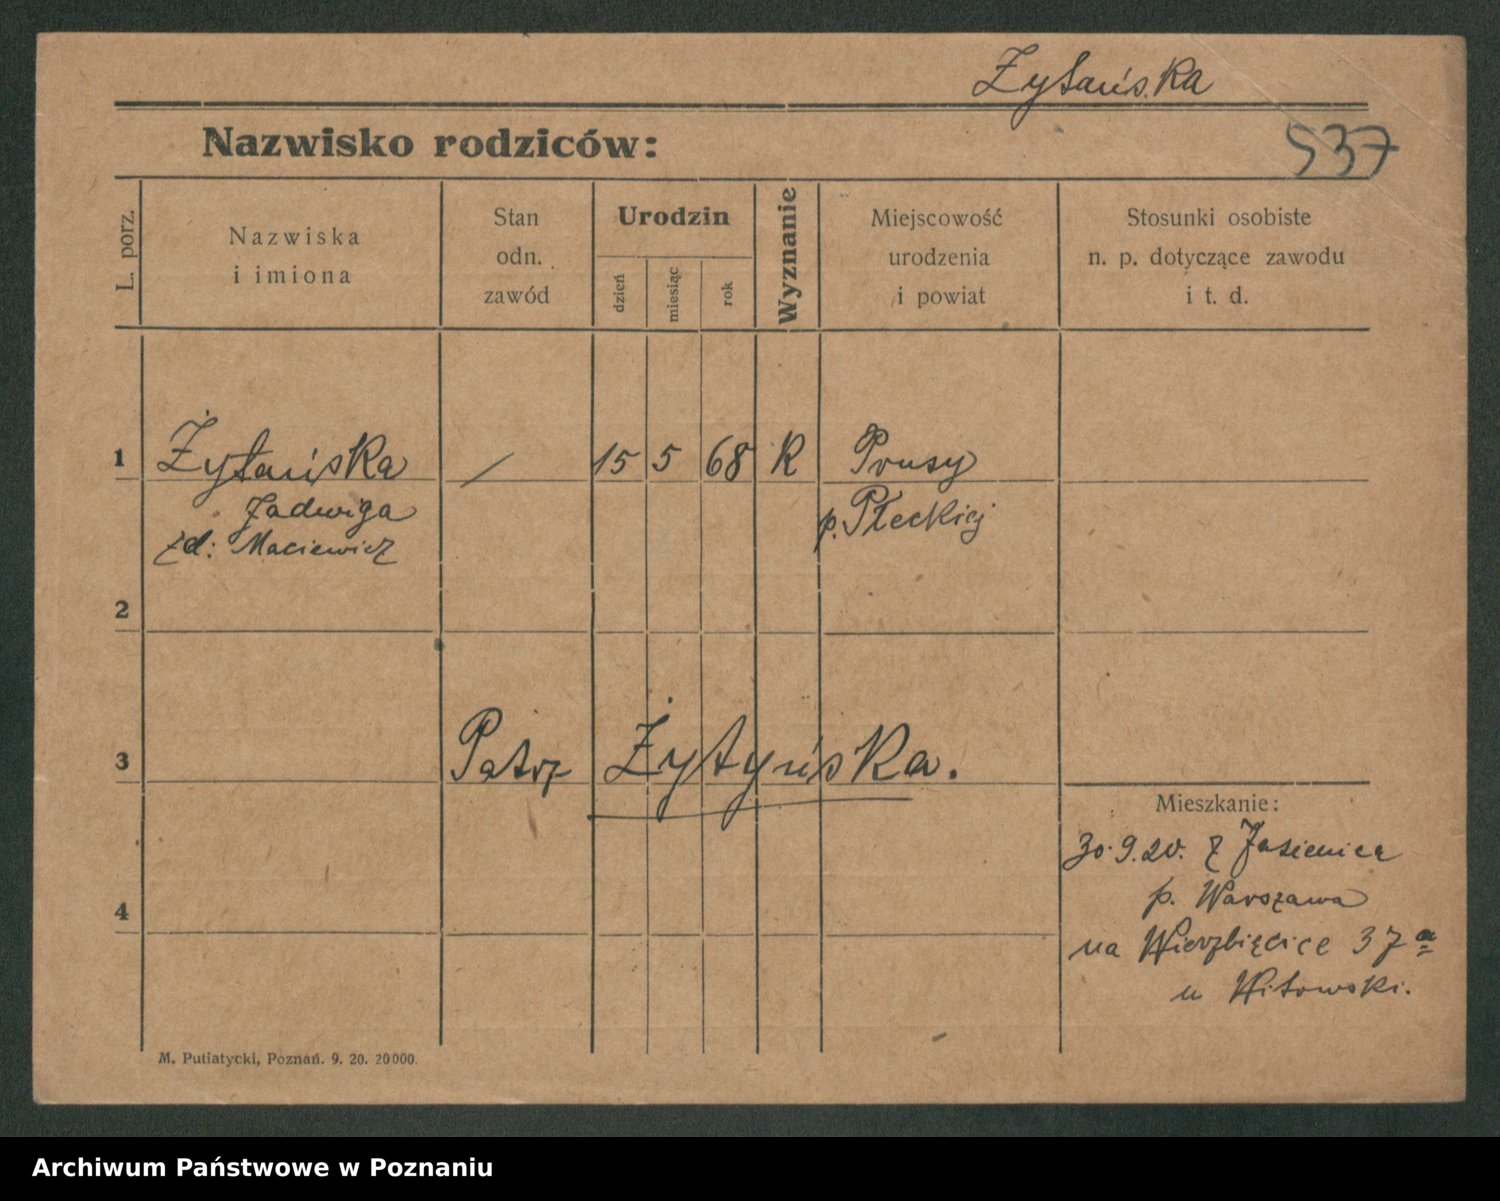 Żytańska
Nazwisko rodziców:
537
L. porz.
Nazwiska
i imiona
Stan
odn.
zawód
Urodzin
dzień
miesiąc
rok
Wyznanie
Miejscowość
urodzenia
i powiat
Stosunki osobiste
n. p. dotyczące zawodu
i t. d.
1 Żytańska / 15 5 68 K Prusy
Jadwiga p. Płeckiej
zd: Maciewicz
2
3 Patrz Żytyńska.
Mieszkanie:
30.9.20. z Jasienica
p. Warszawa
4
na Wierzbięcice 37a
u Witowski.
M. Putiatycki, Poznań. 9. 20. 20000.
Archiwum Państwowe w Poznaniu